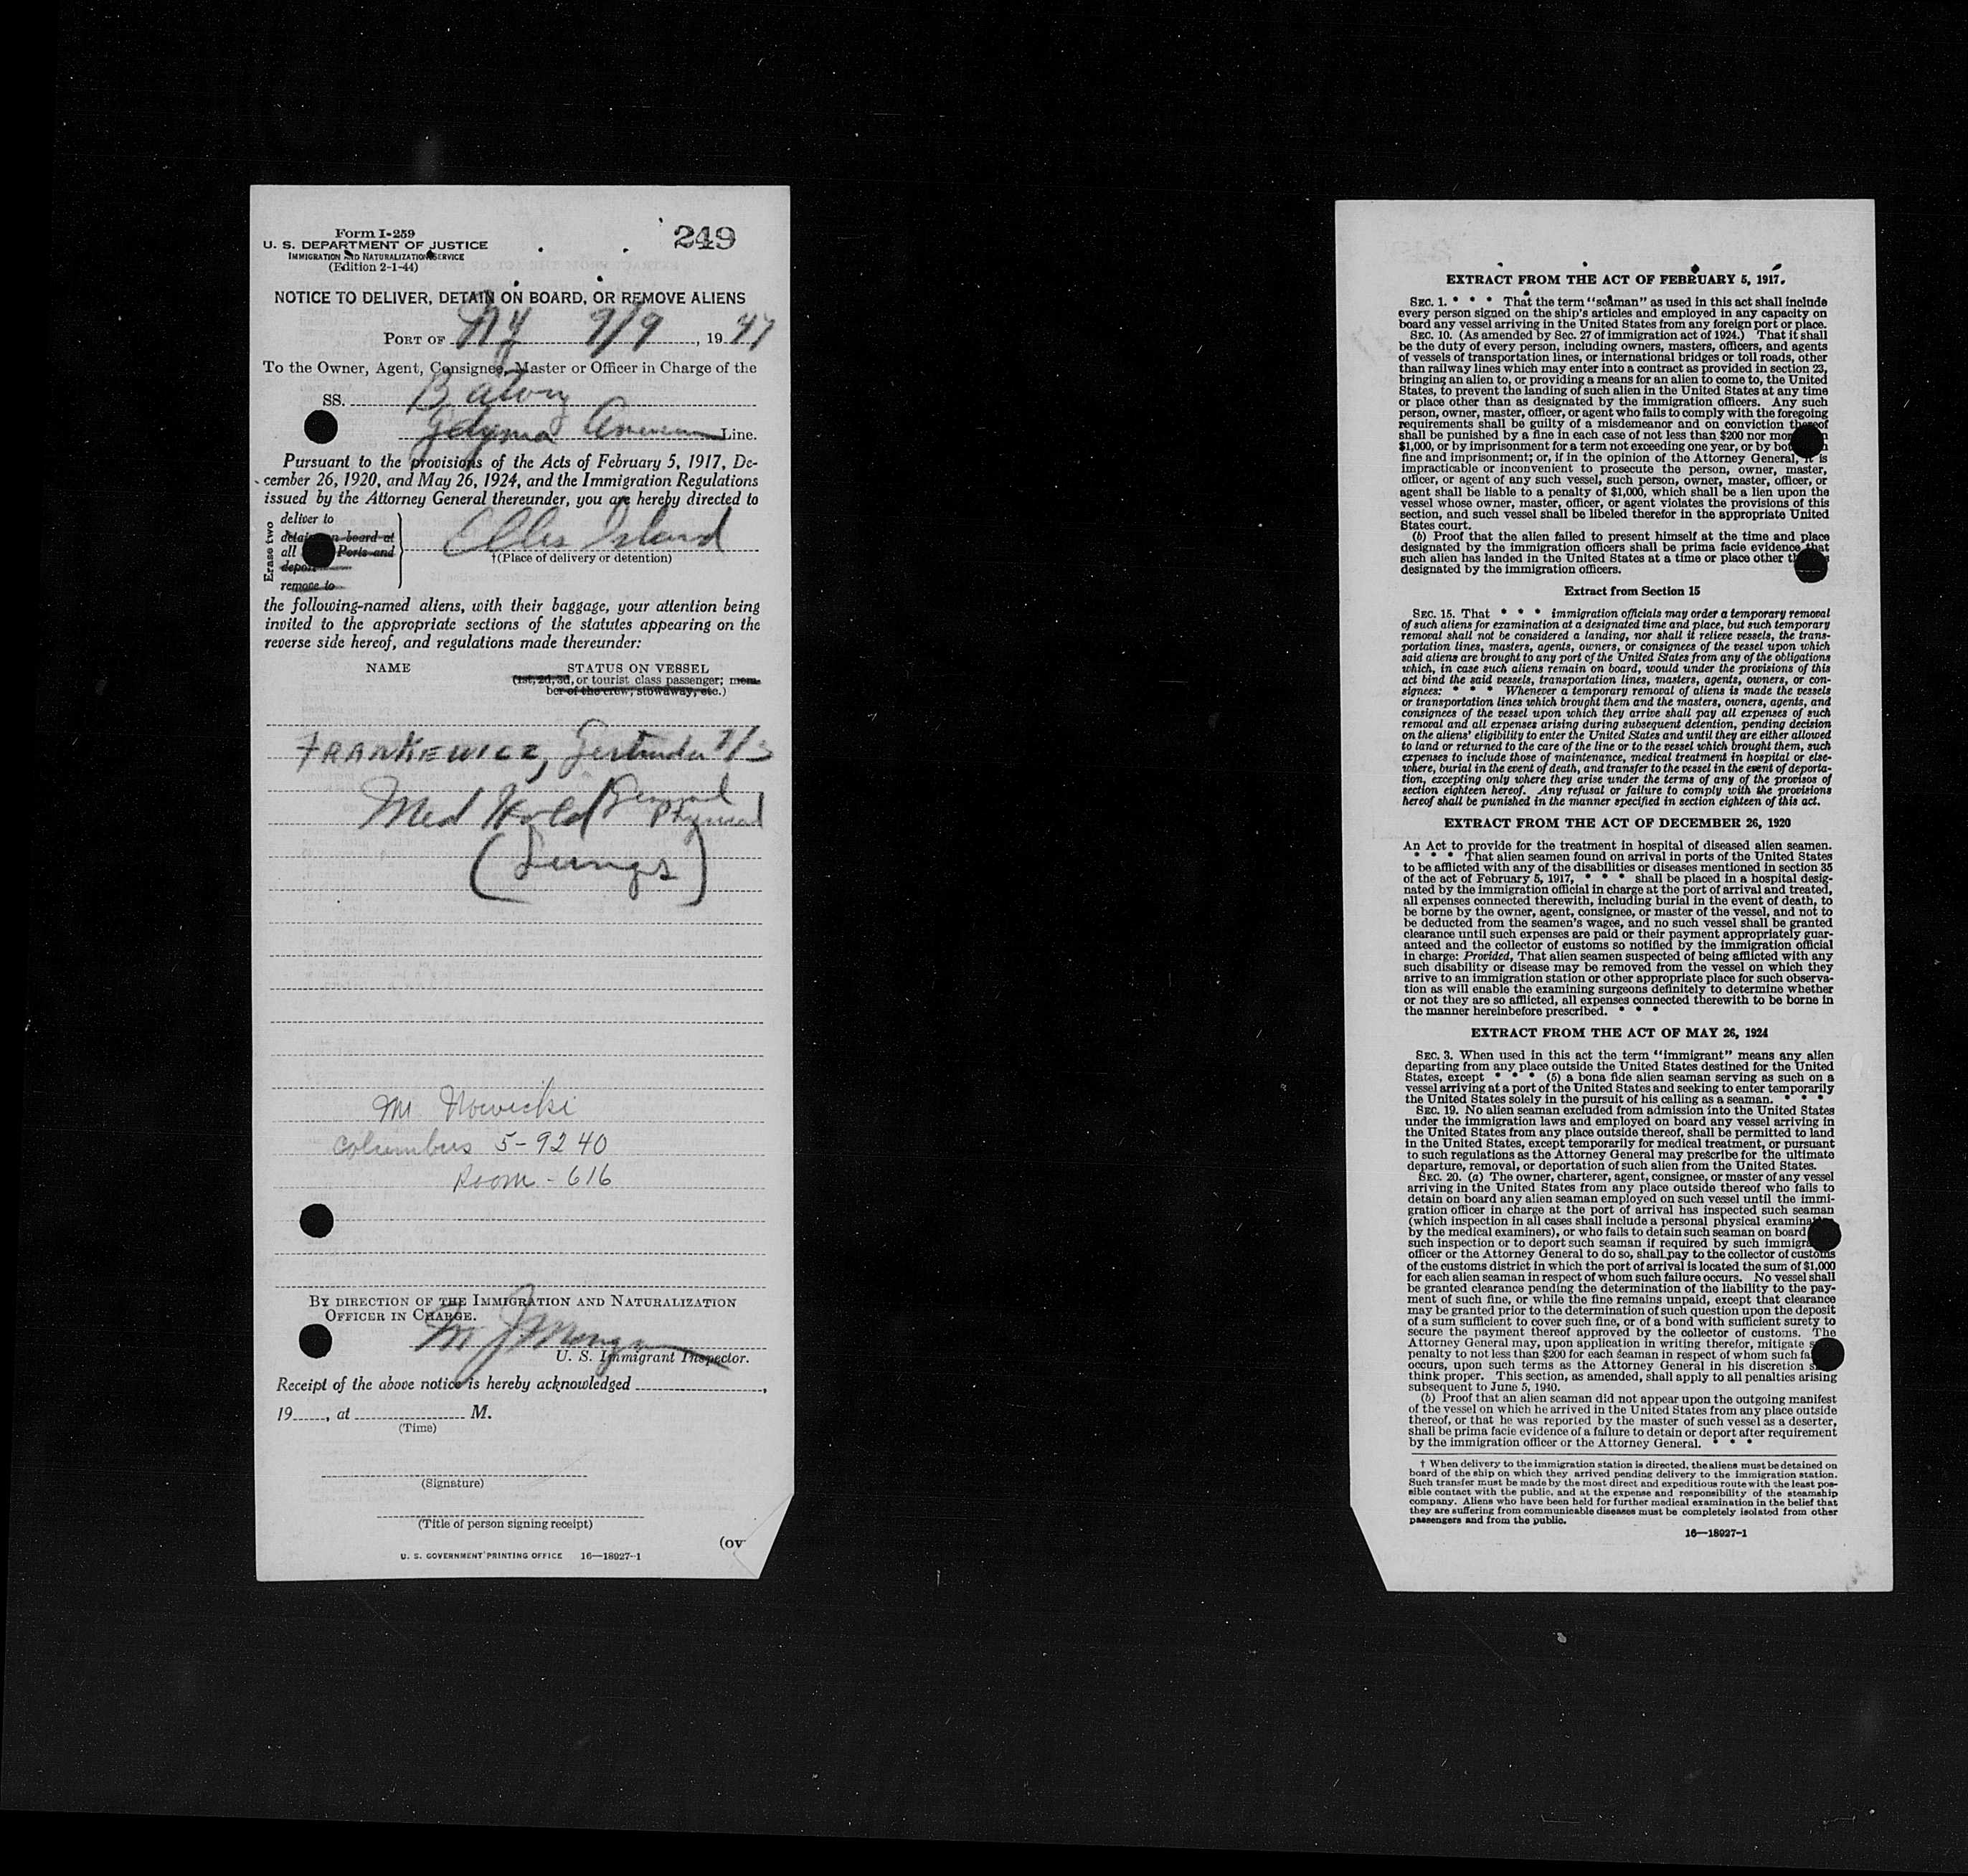 Form I-259
U. S. DEPARTMENT OF JUSTICE
IMMIGRATION AND NATURALIZATION SERVICE
(Edition 2-1-44)
249
NOTICE TO DELIVER, DETAIN ON BOARD, OR REMOVE ALIENS
PORT OF NY 9/9, 1947
To the Owner, Agent, Consignee, Master or Officer in Charge of the
SS. Batory
Gdynia American Line.
Pursuant to the provisions of the Acts of February 5, 1917, De-
cember 26, 1920, and May 26, 1924, and the Immigration Regulations
issued by the Attorney General thereunder, you are hereby directed to
Erase two
deliver to
detain on board at
all Ports and
deport
remove to
Ellis Island
†(Place of delivery or detention)
the following-named aliens, with their baggage, your attention being
invited to the appropriate sections of the statutes appearing on the
reverse side hereof, and regulations made thereunder:
NAME STATUS ON VESSEL
(1st, 2d, 3d, or tourist class passenger; mem-
ber of the crew; stowaway, etc.)
FRANKEWICZ, Gertruda
Med Hold General Physical
(Lungs)
M. Nowicki
Columbus 5-9240
Room - 616
BY DIRECTION OF THE IMMIGRATION AND NATURALIZATION
OFFICER IN CHARGE.
U. S. Immigrant Inspector.
Receipt of the above notice is hereby acknowledged ,
19 , at M.
(Time)
(Signature)
(Title of person signing receipt)
(ov
U. S. GOVERNMENT PRINTING OFFICE 16—18927-1
EXTRACT FROM THE ACT OF FEBRUARY 5, 1917.
SEC. 1. * * * That the term "seaman" as used in this act shall include
every person signed on the ship's articles and employed in any capacity on
board any vessel arriving in the United States from any foreign port or place.
SEC. 10. (As amended by Sec. 27 of immigration act of 1924.) That it shall
be the duty of every person, including owners, masters, officers, and agents
of vessels of transportation lines, or international bridges or toll roads, other
than railway lines which may enter into a contract as provided in section 23,
bringing an alien to, or providing a means for an alien to come to, the United
States, to prevent the landing of such alien in the United States at any time
or place other than as designated by the immigration officers. Any such
person, owner, master, officer, or agent who fails to comply with the foregoing
requirements shall be guilty of a misdemeanor and on conviction thereof
shall be punished by a fine in each case of not less than $200 nor mor
$1,000, or by imprisonment for a term not exceeding one year, or by bot
fine and imprisonment; or, if in the opinion of the Attorney General, it is
impracticable or inconvenient to prosecute the person, owner, master,
officer, or agent of any such vessel, such person, owner, master, officer, or
agent shall be liable to a penalty of $1,000, which shall be a lien upon the
vessel whose owner, master, officer, or agent violates the provisions of this
section, and such vessel shall be libeled therefor in the appropriate United
States court.
(b) Proof that the alien failed to present himself at the time and place
designated by the immigration officers shall be prima facie evidence that
such alien has landed in the United States at a time or place other th
designated by the immigration officers.
Extract from Section 15
SEC. 15. That * * * immigration officials may order a temporary removal
of such aliens for examination at a designated time and place, but such temporary
removal shall not be considered a landing, nor shall it relieve vessels, the trans-
portation lines, masters, agents, owners, or consignees of the vessel upon which
said aliens are brought to any port of the United States from any of the obligations
which, in case such aliens remain on board, would under the provisions of this
act bind the said vessels, transportation lines, masters, agents, owners, or con-
signees: * * * Whenever a temporary removal of aliens is made the vessels
or transportation lines which brought them and the masters, owners, agents, and
consignees of the vessel upon which they arrive shall pay all expenses of such
removal and all expenses arising during subsequent detention, pending decision
on the aliens' eligibility to enter the United States and until they are either allowed
to land or returned to the care of the line or to the vessel which brought them, such
expenses to include those of maintenance, medical treatment in hospital or else-
where, burial in the event of death, and transfer to the vessel in the event of deporta-
tion, excepting only where they arise under the terms of any of the provisos of
section eighteen hereof. Any refusal or failure to comply with the provisions
hereof shall be punished in the manner specified in section eighteen of this act.
EXTRACT FROM THE ACT OF DECEMBER 26, 1920
An Act to provide for the treatment in hospital of diseased alien seamen.
* * * That alien seamen found on arrival in ports of the United States
to be afflicted with any of the disabilities or diseases mentioned in section 35
of the act of February 5, 1917, * * * shall be placed in a hospital desig-
nated by the immigration official in charge at the port of arrival and treated,
all expenses connected therewith, including burial in the event of death, to
be borne by the owner, agent, consignee, or master of the vessel, and not to
be deducted from the seamen's wages, and no such vessel shall be granted
clearance until such expenses are paid or their payment appropriately guar-
anteed and the collector of customs so notified by the immigration official
in charge: Provided, That alien seamen suspected of being afflicted with any
such disability or disease may be removed from the vessel on which they
arrive to an immigration station or other appropriate place for such observa-
tion as will enable the examining surgeons definitely to determine whether
or not they are so afflicted, all expenses connected therewith to be borne in
the manner hereinbefore prescribed. * * *
EXTRACT FROM THE ACT OF MAY 26, 1924
SEC. 3. When used in this act the term "immigrant" means any alien
departing from any place outside the United States destined for the United
States, except * * * (5) a bona fide alien seaman serving as such on a
vessel arriving at a port of the United States and seeking to enter temporarily
the United States solely in the pursuit of his calling as a seaman. * * *
SEC. 19. No alien seaman excluded from admission into the United States
under the immigration laws and employed on board any vessel arriving in
the United States from any place outside thereof, shall be permitted to land
in the United States, except temporarily for medical treatment, or pursuant
to such regulations as the Attorney General may prescribe for the ultimate
departure, removal, or deportation of such alien from the United States.
SEC. 20. (a) The owner, charterer, agent, consignee, or master of any vessel
arriving in the United States from any place outside thereof who fails to
detain on board any alien seaman employed on such vessel until the immi-
gration officer in charge at the port of arrival has inspected such seaman
(which inspection in all cases shall include a personal physical examination
by the medical examiners), or who fails to detain such seaman on board
such inspection or to deport such seaman if required by such immigra
officer or the Attorney General to do so, shall pay to the collector of customs
of the customs district in which the port of arrival is located the sum of $1,000
for each alien seaman in respect of whom such failure occurs. No vessel shall
be granted clearance pending the determination of the liability to the pay-
ment of such fine, or while the fine remains unpaid, except that clearance
may be granted prior to the determination of such question upon the deposit
of a sum sufficient to cover such fine, or of a bond with sufficient surety to
secure the payment thereof approved by the collector of customs. The
Attorney General may, upon application in writing therefor, mitigate s
penalty to not less than $200 for each seaman in respect of whom such fa
occurs, upon such terms as the Attorney General in his discretion s
think proper. This section, as amended, shall apply to all penalties arising
subsequent to June 5, 1940.
(b) Proof that an alien seaman did not appear upon the outgoing manifest
of the vessel on which he arrived in the United States from any place outside
thereof, or that he was reported by the master of such vessel as a deserter,
shall be prima facie evidence of a failure to detain or deport after requirement
by the immigration officer or the Attorney General. * * *
† When delivery to the immigration station is directed, the aliens must be detained on
board of the ship on which they arrived pending delivery to the immigration station.
Such transfer must be made by the most direct and expeditious route with the least pos-
sible contact with the public, and at the expense and responsibility of the steamship
company. Aliens who have been held for further medical examination in the belief that
they are suffering from communicable diseases must be completely isolated from other
passengers and from the public.
16—18927-1